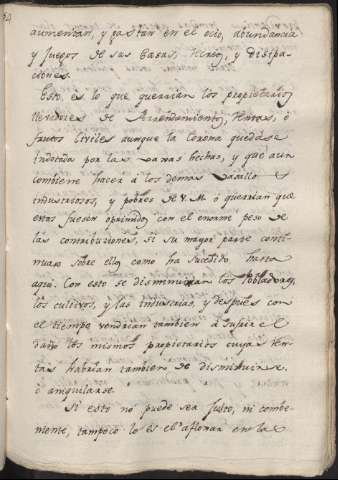 aumentan, y gastan en el ocio, abundancia
y Juegos de sus Casas, Hixos, y disipa-
ciones.
Esto es lo que querrian los propietarios
llevarles de Arrendamientos, Rentas, ó
frutos Civiles aunque la Corona quedase
indotada por las varias hechas, y que aun
combiene hacer á los demas Vasallos
industriosos, y pobres de V.M. ó querrian que
estos fuesen oprimidos con el enorme peso de
las contribuciones, si su mayor parte conti-
nuara sobre ellos como ha sucedido hasta
aqui. Con esto se disminuian los Pobladores,
los cultivos, y las industrias, y despues con
el tiempo vendrian tambien á sufrir el
daño los mismos propietarios cuyas ren-
tas habrian tambien de disminuirse
ó aniquilarse.
Si esto no puede ser justo, ni combe-
niente, tampoco lo es el afloxar en la